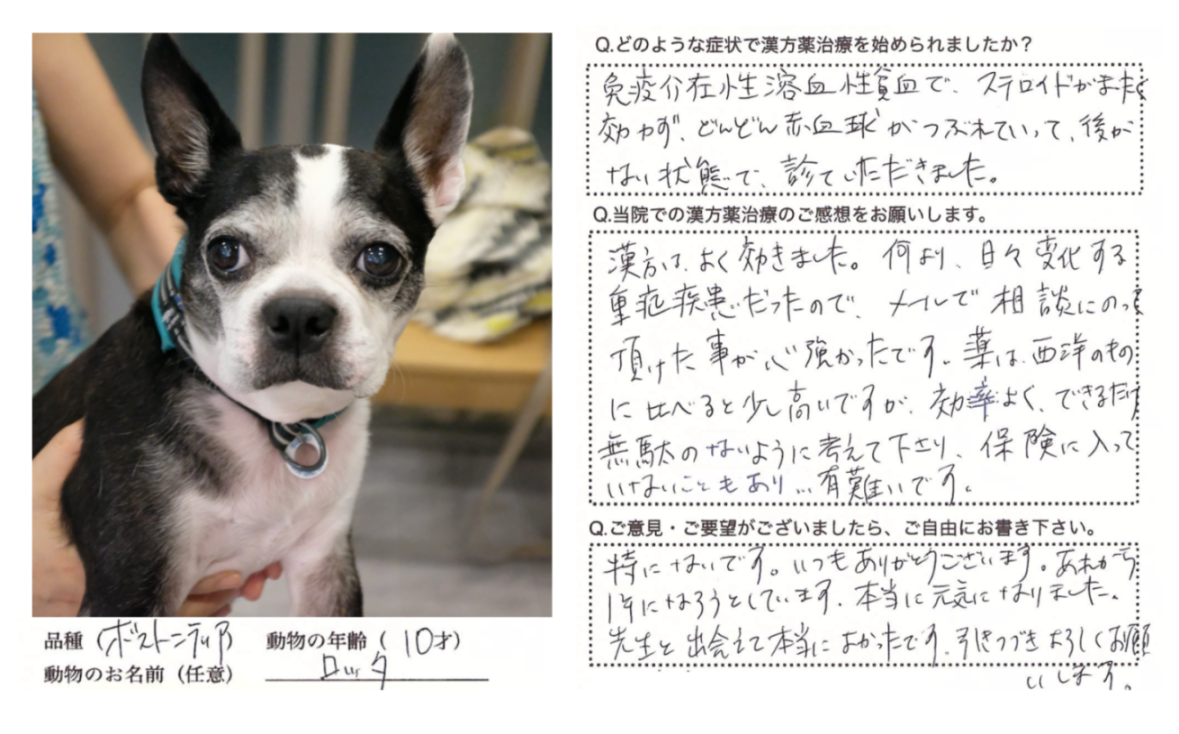 Q.どのような症状で漢方薬治療を始められましたか？
免疫介在性溶血性貧血で、ステロイドがまったく
効かず、どんどん赤血球がつぶれていって、後が
ない状態で、診ていただきました。
Q.当院での漢方薬治療のご感想をお願いします。
漢方は、よく効きました。何より、日々変化する
重症疾患だったので、メールで相談にのって
頂けた事が心強かったです。薬は、西洋のもの
に比べると少し高いですが、効率よく、できるだけ
無駄のないように考えて下さり、保険に入って
いないこともあり…有難いです。
Q.ご意見・ご要望がございましたら、ご自由にお書き下さい。
特にないです。いつもありがとうございます。あれから
1年になろうとしています。本当に元気になりました。
先生と出会えて本当によかったです。引きつづきよろしくお願
いします。
品種（ボストンテリア）　動物の年齢（10才）
動物のお名前（任意）　ロック